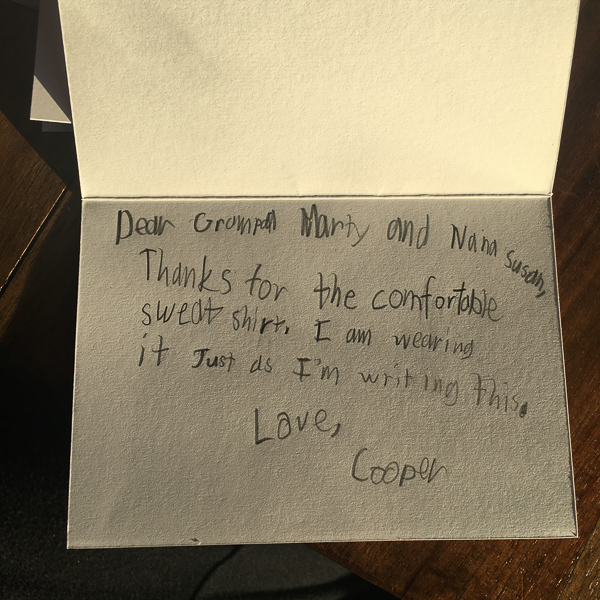 Dear Grampa Marty and Nana Susan,
Thanks for the comfortable
sweat shirt. I am wearing
it Just as I'm writing this.
Love,
Cooper